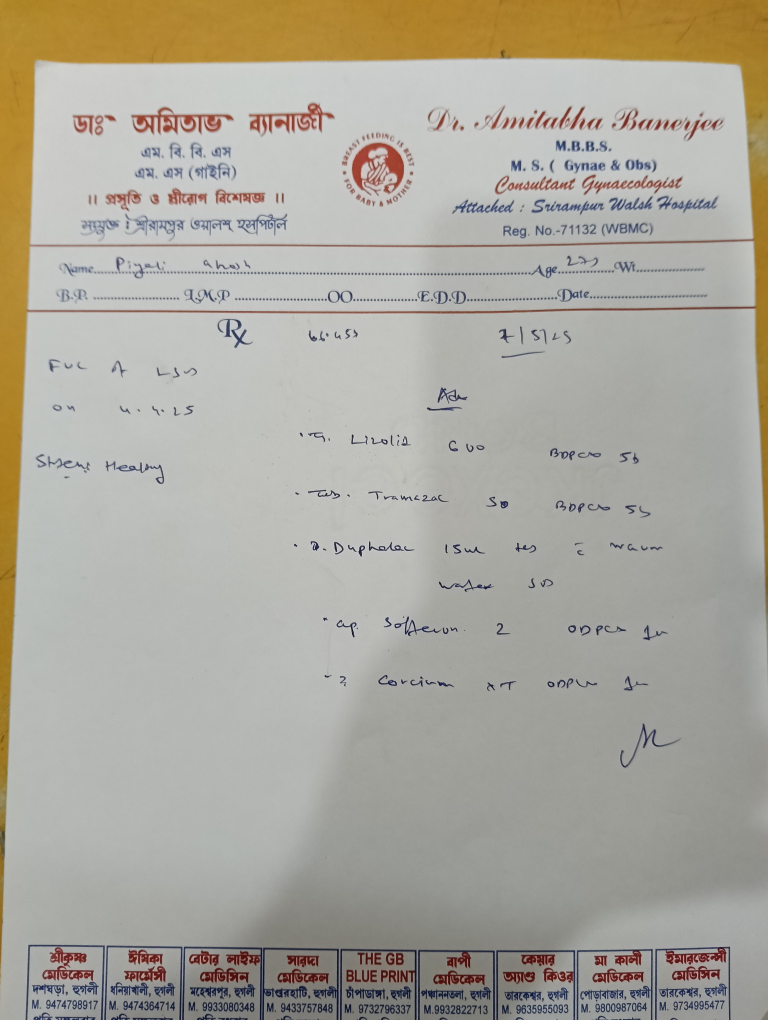 ডাঃ অমিতাভ ব্যানার্জী
এম. বি. বি. এস
এম. এস (গাইনি)
।। প্রসূতি ও স্ত্রীরোগ বিশেষজ্ঞ ।।
সংযুক্ত : শ্রীরামপুর ওয়ালশ হসপিটাল
BREAST FEEDING IS BEST
FOR BABY & MOTHER
Dr. Amitabha Banerjee
M.B.B.S.
M. S. ( Gynae & Obs)
Consultant Gynaecologist
Attached : Srirampur Walsh Hospital
Reg. No.-71132 (WBMC)
Name Piyali Ghosh Age 27y Wt
B.P. L.M.P OO E.D.D Date
Rx 7/5/25
FUC of LSCS
on 4.4.25
Healthy
Adv
T. Lizolid 600 BDPC 5d
Tab. Tramazac 50 BDPC 5d
Duphalac 15ml c warm
water
Cap. Softeron 2 ODPC 1m
Corcium XT ODPC 1m
শ্রীকৃষ্ণ মেডিকেল
দশঘড়া, হুগলী
M. 9474798917
ঈশিকা ফার্মেসী
ধনিয়াখালী, হুগলী
M. 9474364714
বেটার লাইফ মেডিসিন
মহেশ্বরপুর, হুগলী
M. 9933080348
সারদা মেডিকেল
ভাণ্ডারহাটি, হুগলী
M. 9433757848
THE GB BLUE PRINT
চাঁপাডাঙ্গা, হুগলী
M. 9732796337
বাপী মেডিকেল
পঞ্চাননতলা, হুগলী
M.9932822713
কেয়ার অ্যাণ্ড কিওর
তারকেশ্বর, হুগলী
M. 9635955093
মা কালী মেডিকেল
পোড়াবাজার, হুগলী
M. 9800987064
ইমারজেন্সী মেডিসিন
তারকেশ্বর, হুগলী
M. 9734995477